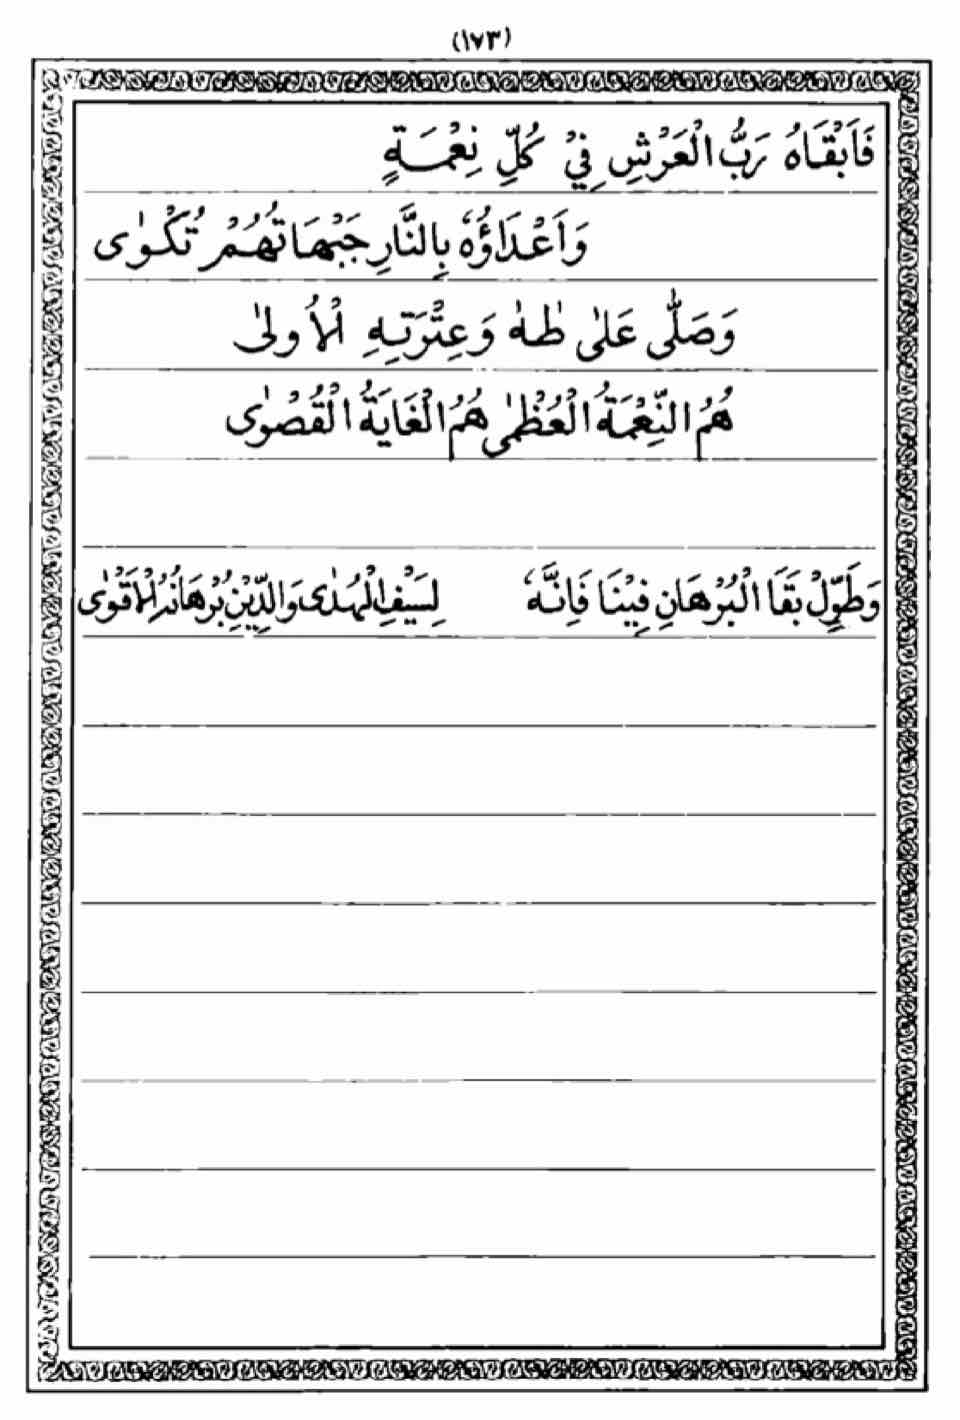 (١٧٣)
فَاَبْقَاهُ رَبُّ الْعَرْشِ فِيْ كُلِّ نِعْمَةٍ
وَاَعْدَاؤُهٗ بِالنَّارِ جَبْهَاتُهُمْ تُكْوٰى
وَصَلّٰى عَلٰى طٰهٰ وَعِتْرَتِهِ الْاُولىٰ
هُمُ النِّعْمَةُ الْعُظْمٰى هُمُ الْغَايَةُ الْقُصْوٰى
وَطَوِّلْ بَقَا الْبُرْهَانِ فِيْنَا فَاِنَّهٗ لِسَيْفِ الْهُدٰى وَالدِّيْنِ بُرْهَانُهُ الْاَقْوٰى